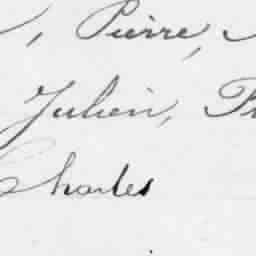 , Pierre,
Julien,
Charles